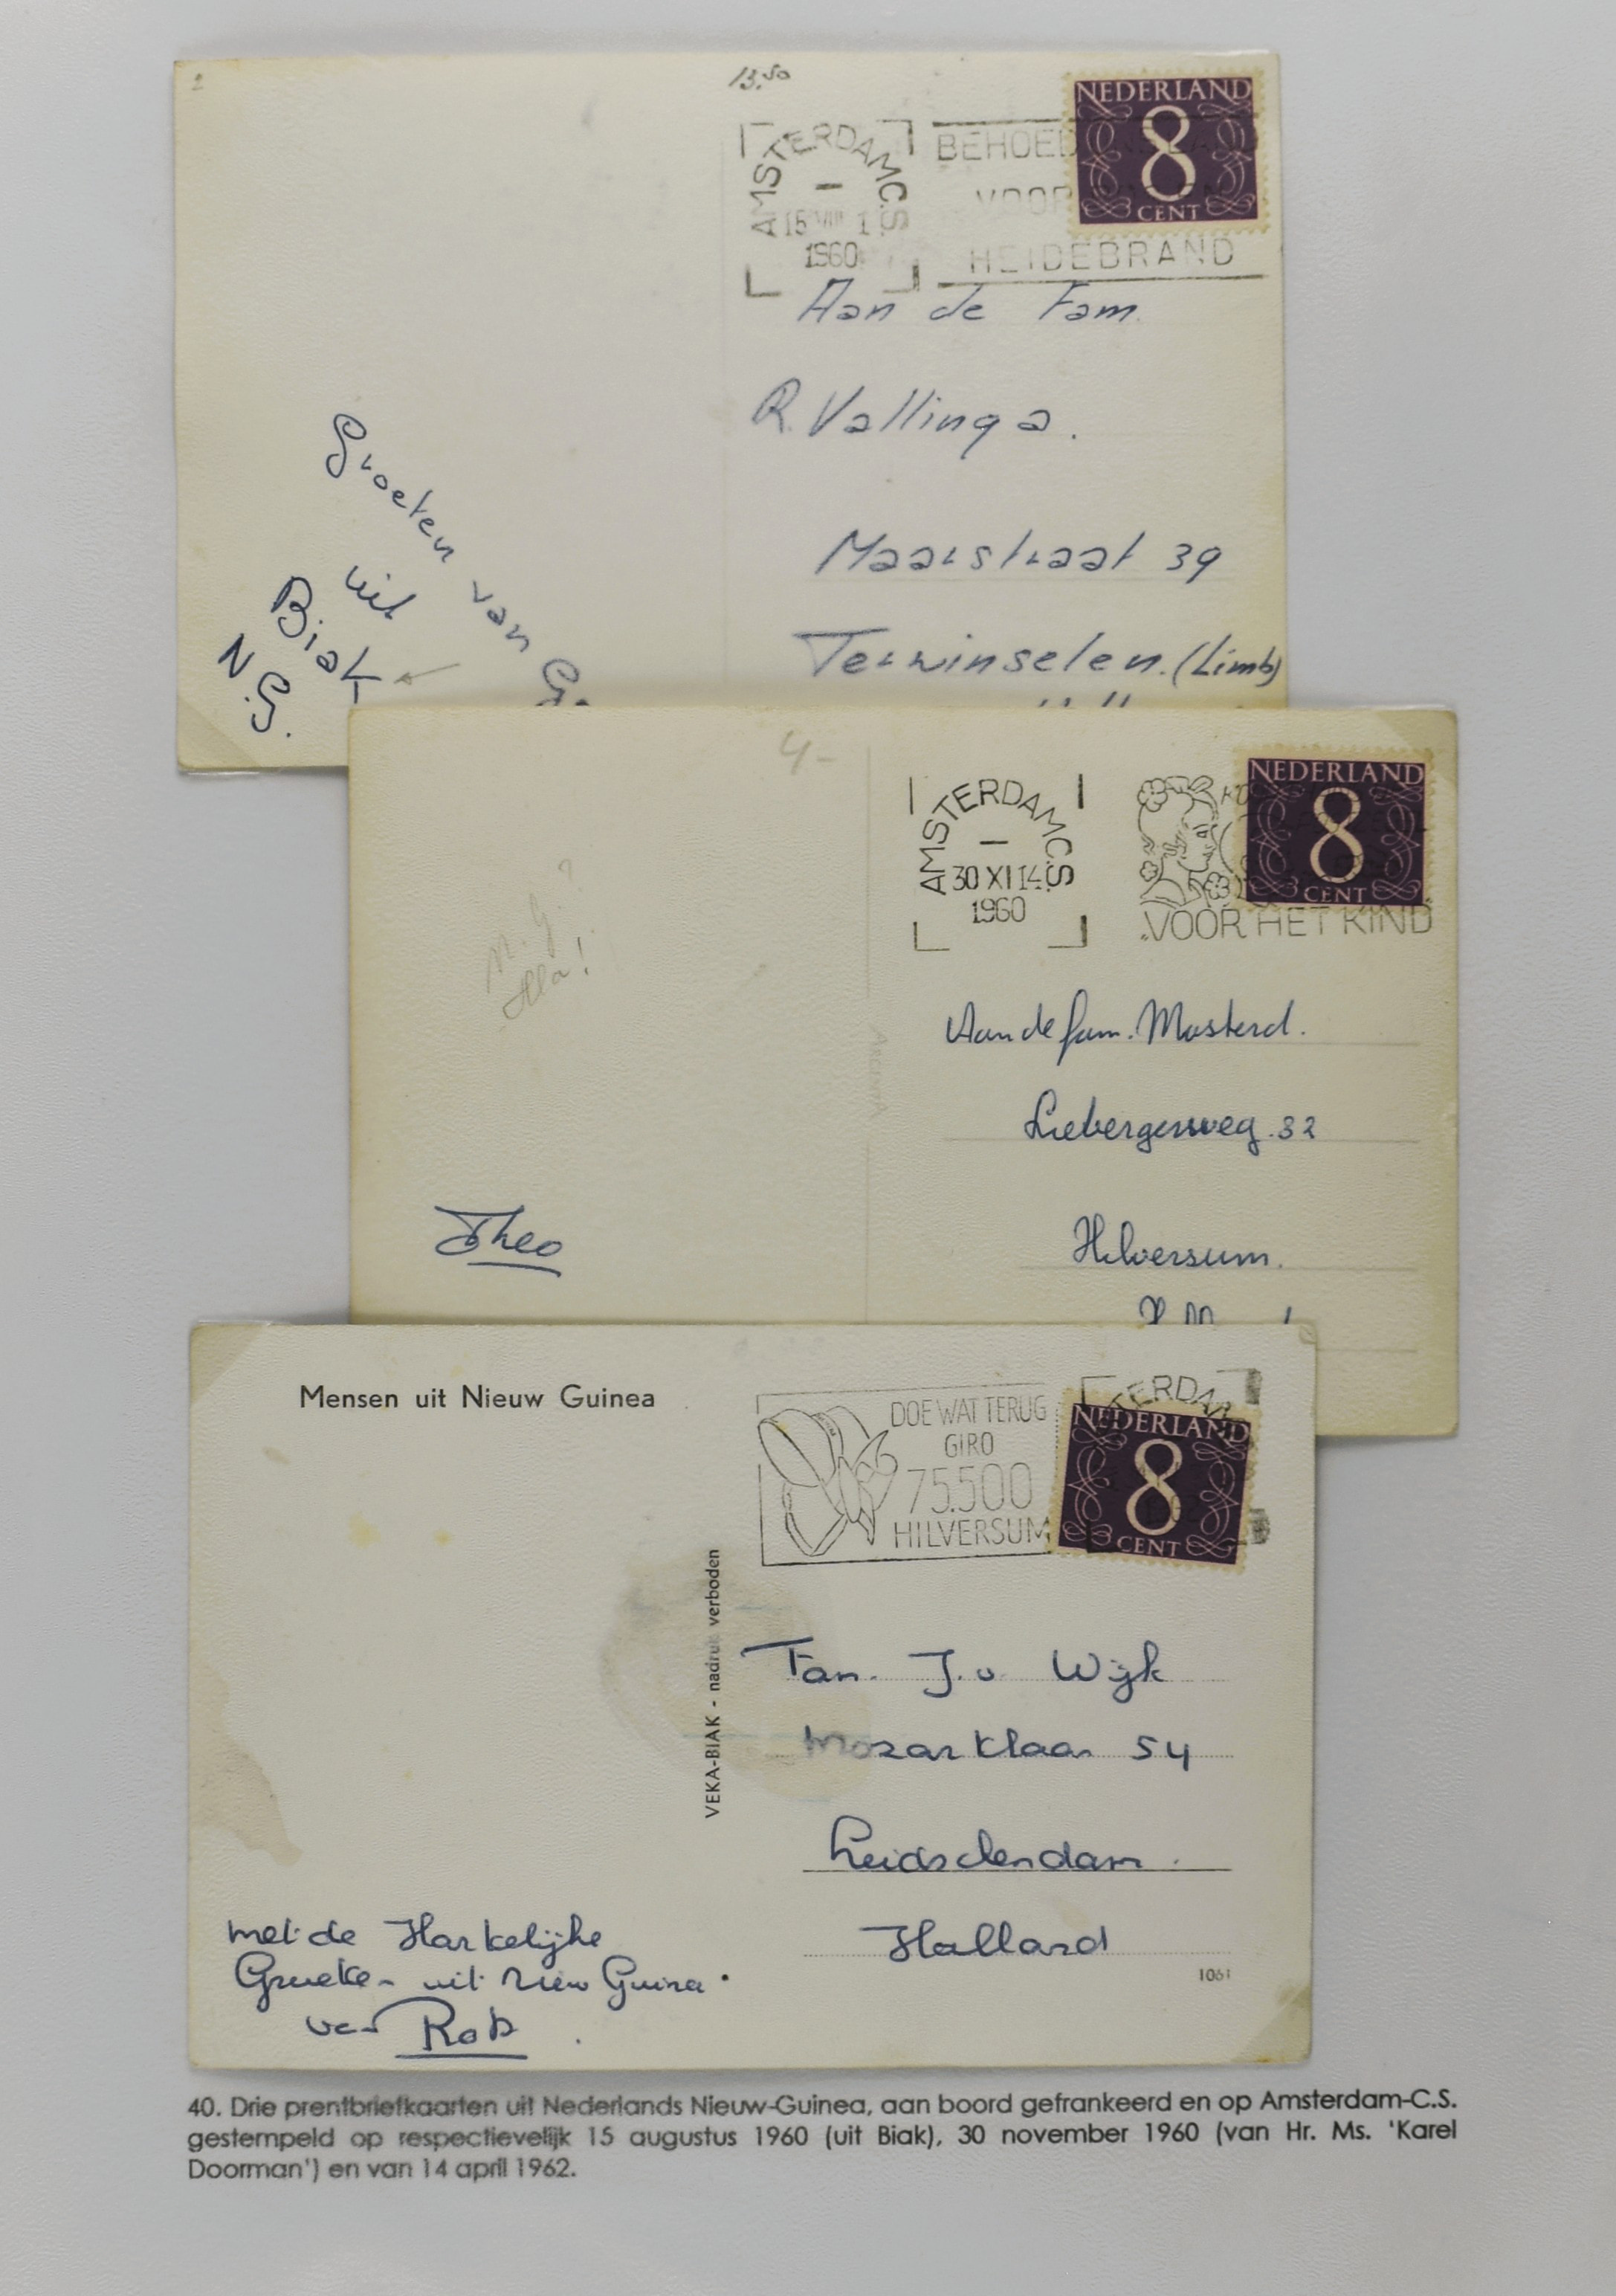 2
13.50
NEDERLAND
8
CENT
AMSTERDAM C.S
15 VIII 1
1960
BEHOED ONS LAND
VOOR
HEIDEBRAND
Aan de Fam.
R. Vallinga.
Maarstraat 39
Terwinselen. (Limb)
Groeten van
uit
Biak
N.G.
4-
NEDERLAND
8
CENT
AMSTERDAM C.S
30 XI 14
1960
VOOR HET KIND
N.G.?
Aan de fam. Mosterd.
Liebergerweg. 32
Hilversum.
Theo
Mensen uit Nieuw Guinea
DOE WAT TERUG
GIRO
75.500
HILVERSUM
TERDAM
NEDERLAND
8
CENT
VEKA-BIAK - nadruk verboden
Fam. J. v Wijk
Mozartlaan 54
Leidschendam.
Holland
1061
met de Hartelijke
Groeten uit Nieuw Guinea.
van Rob.
40. Drie prentbriefkaarten uit Nederlands Nieuw-Guinea, aan boord gefrankeerd en op Amsterdam-C.S.
gestempeld op respectievelijk 15 augustus 1960 (uit Biak), 30 november 1960 (van Hr. Ms. 'Karel
Doorman') en van 14 april 1962.